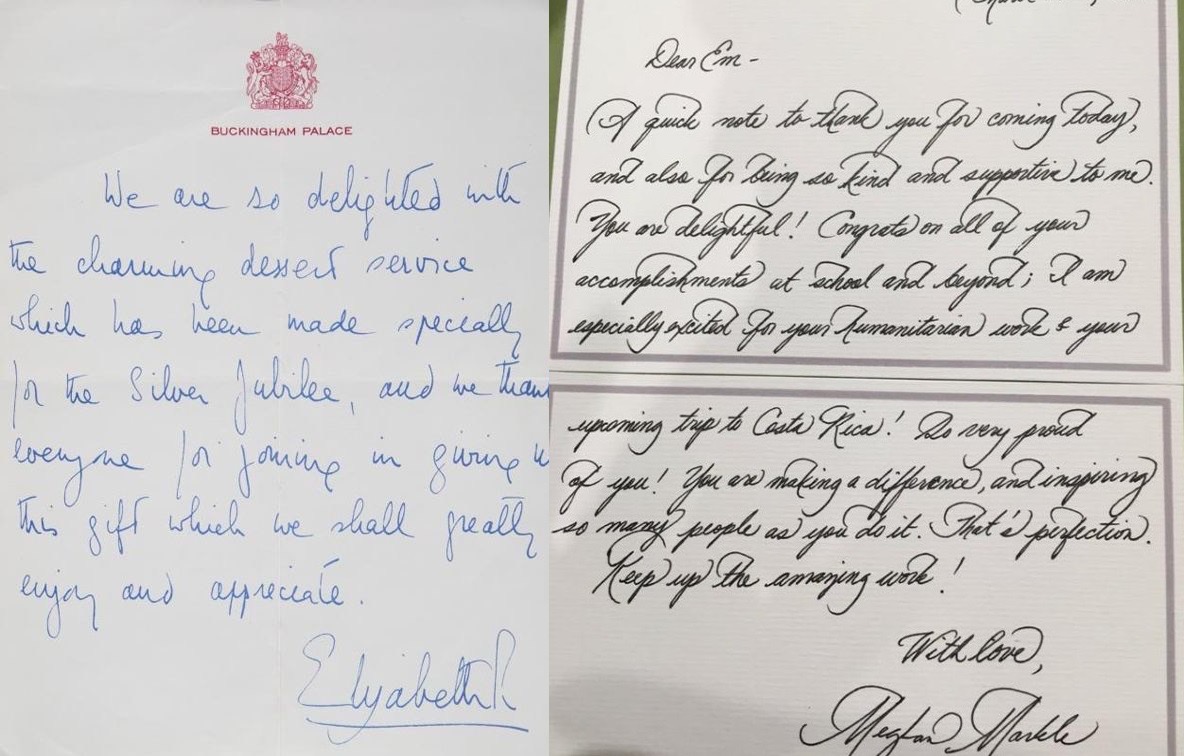 BUCKINGHAM PALACE
We are so delighted with
the charming dessert service
which has been made specially
for the Silver Jubilee, and we thank
everyone for joining in giving
this gift which we shall greatly
enjoy and appreciate.
Elizabeth R
Dear Em -
A quick note to thank you for coming today,
and also for being so kind and supportive to me.
You are delightful! Congrats on all of your
accomplishments at school and beyond; I am
especially excited for your humanitarian work & your
upcoming trip to Costa Rica! So very proud
of you! You are making a difference, and inspiring
so many people as you do it. That's perfection.
Keep up the amazing work!
With love,
Meghan Markle